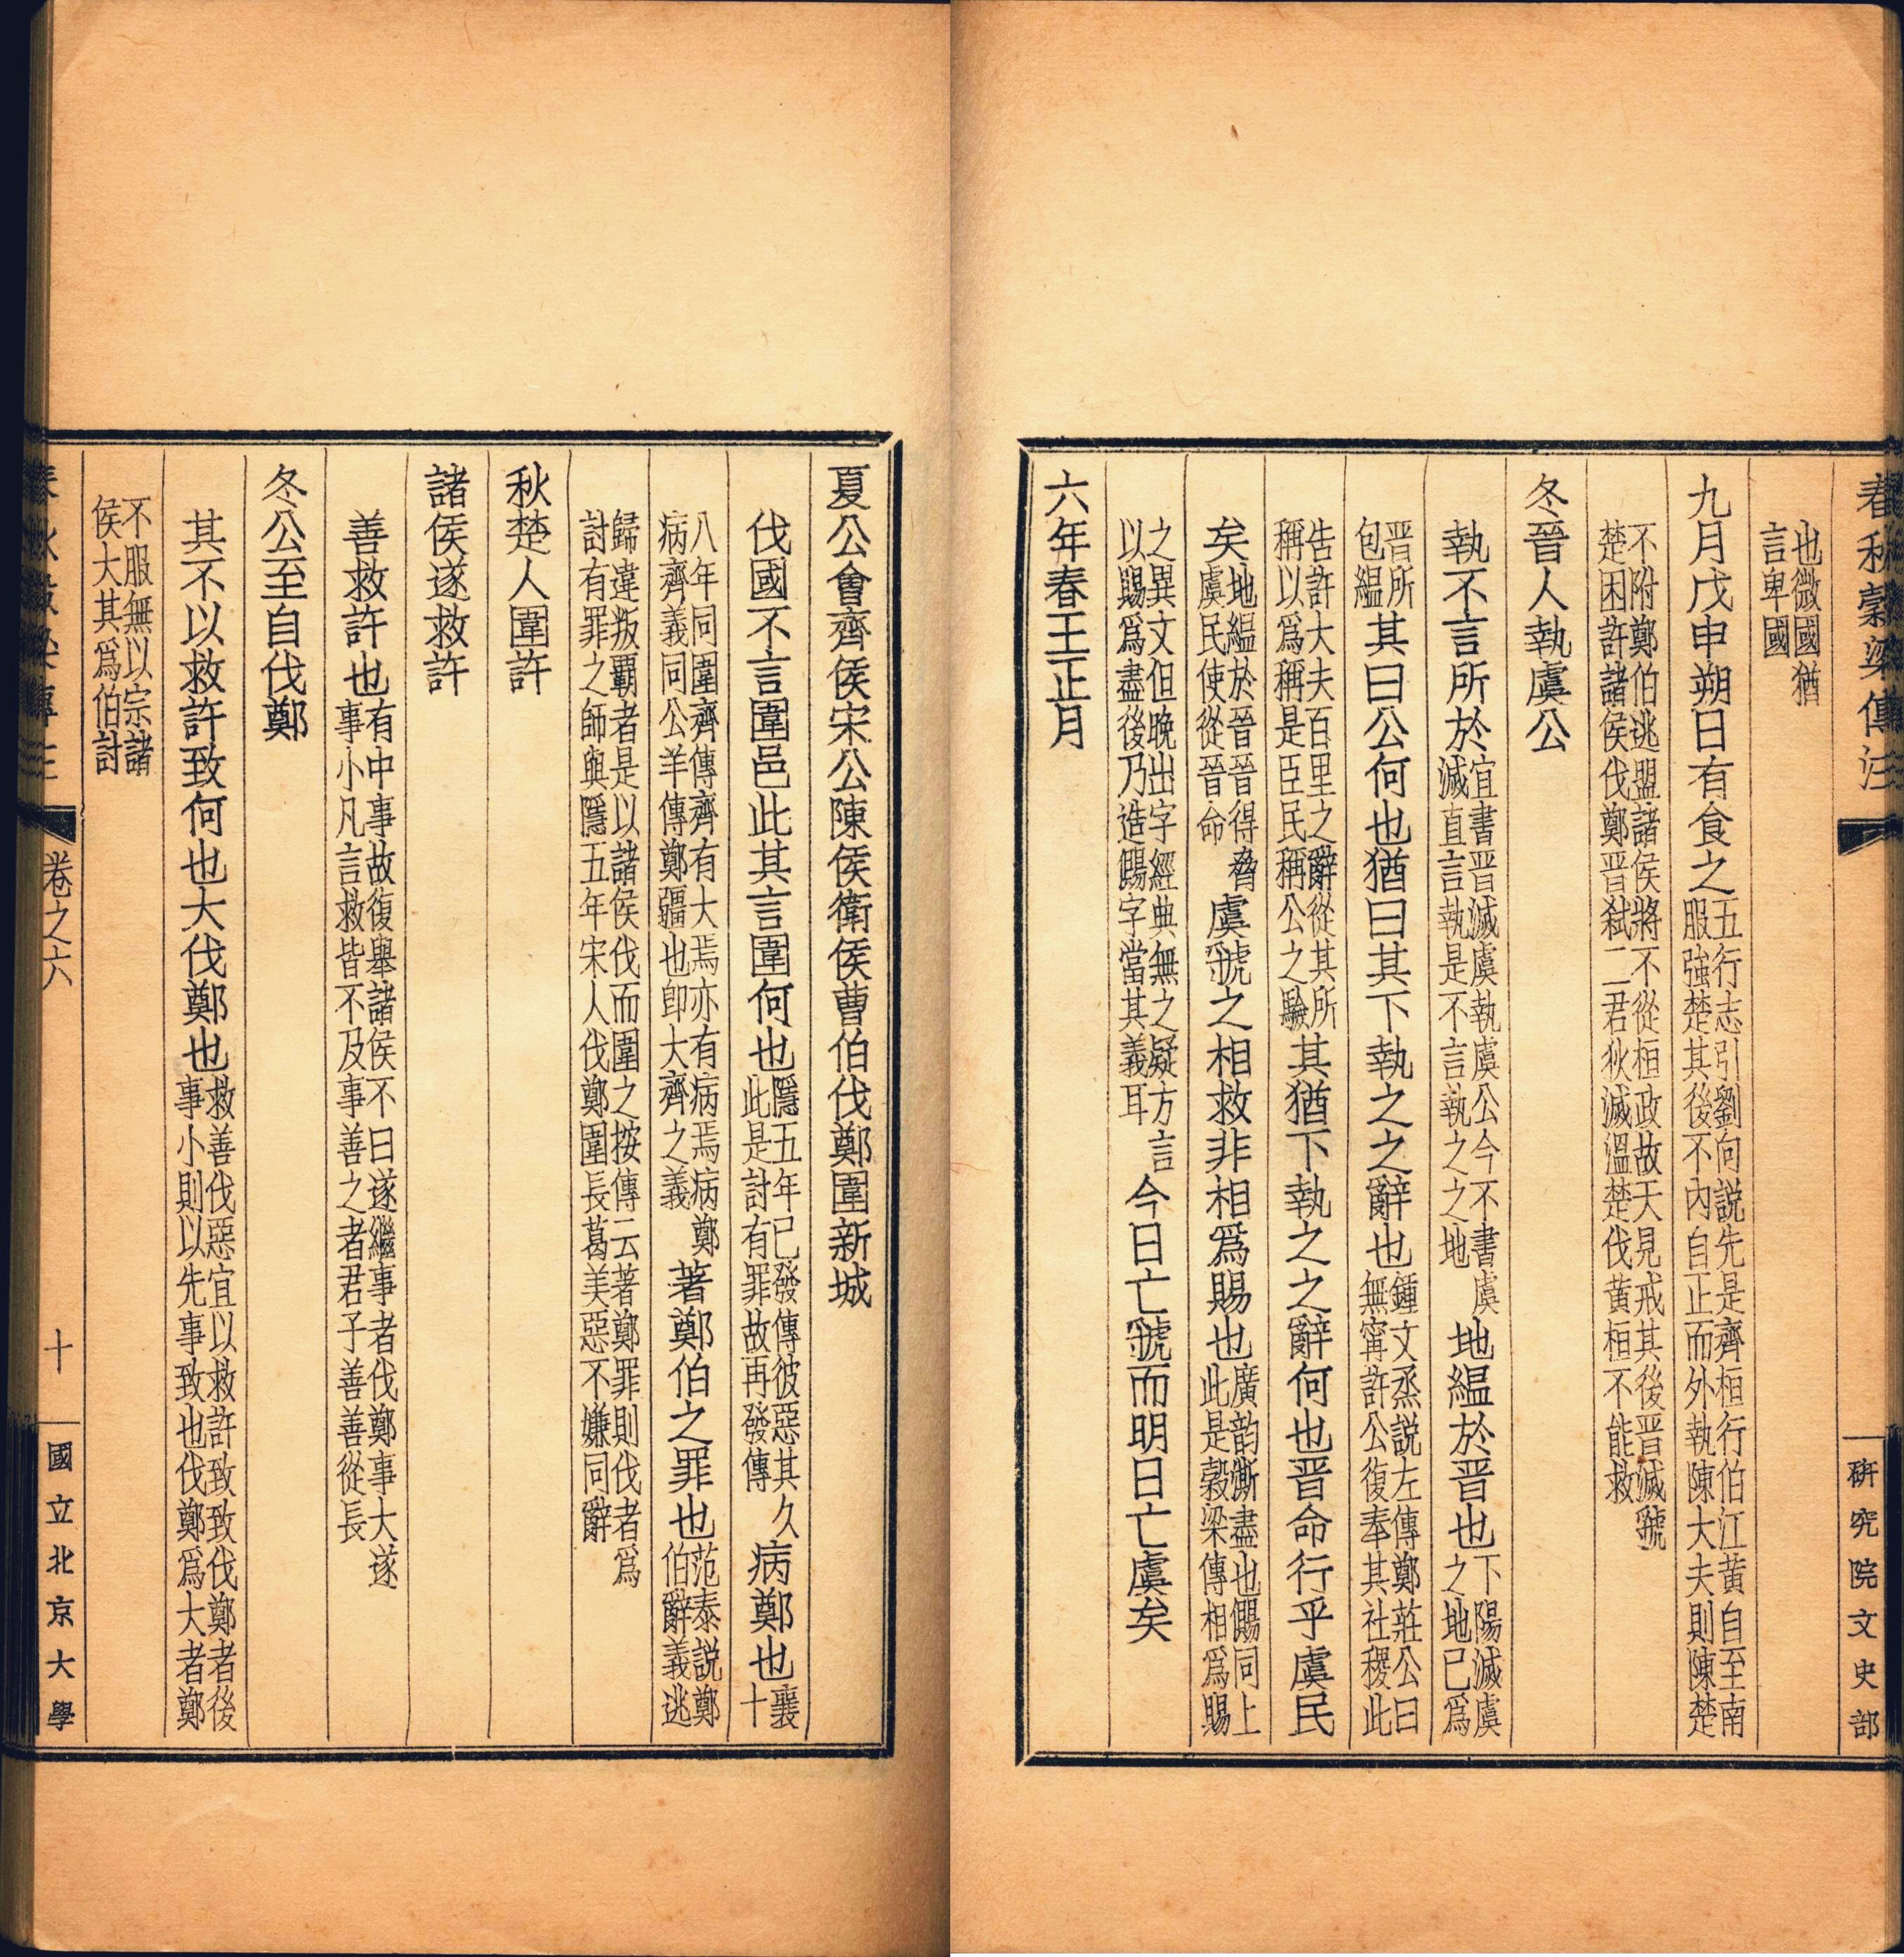 春秋穀梁傳注
研究院文史部
也微國猶
言卑國
九月戊申朔日有食之五行志引劉向説先是齊桓行伯江黄自至南
服強楚其後不内自正而外執陳大夫則陳楚
不附鄭伯逃盟諸侯將不從桓政故天見戒其後晋滅虢
楚困許諸侯伐鄭晋弑二君狄滅溫楚伐黄桓不能救
冬晉人執虞公
執不言所於宜書晋滅虞執虞公今不書虞
滅直言執是不言執之之地地緼於晋也下陽滅虞
之地已爲
晋所
包緼其曰公何也猶曰其下執之之辭也鍾文烝説左傳鄭莊公曰
無甯許公復奉其社稷此
告許大夫百里之辭從其所
稱以爲稱是臣民稱公之驗其猶下執之之辭何也晋命行乎虞民
矣地緼於晉晉得脅
虞民使從晉命虞虢之相救非相爲賜也廣韵澌盡也儩同上
此是穀梁傳相爲賜
之異文但晚出字經典無之疑方言
以賜爲盡後乃造儩字當其義耳今日亡虢而明日亡虞矣
六年春王正月
夏公會齊侯宋公陳侯衛侯曹伯伐鄭圍新城
伐國不言圍邑此其言圍何也隱五年已發傳彼惡其久
此是討有罪故再發傳病鄭也襄
十
八年同圍齊傳齊有大焉亦有病焉病鄭
病齊義同公羊傳鄭疆也卽大齊之義著鄭伯之罪也范泰説鄭
伯辭義逃
歸違叛覇者是以諸侯伐而圍之按傳云著鄭罪則伐者爲
討有罪之師與隱五年宋人伐鄭圍長葛美惡不嫌同辭
秋楚人圍許
諸侯遂救許
善救許也有中事故復舉諸侯不曰遂繼事者伐鄭事大遂
事小凡言救皆不及事善之者君子善善從長
冬公至自伐鄭
其不以救許致何也大伐鄭也救善伐惡宜以救許致致伐鄭者後
事小則以先事致也伐鄭爲大者鄭
不服無以宗諸
侯大其爲伯討
卷之六
十
國立北京大學